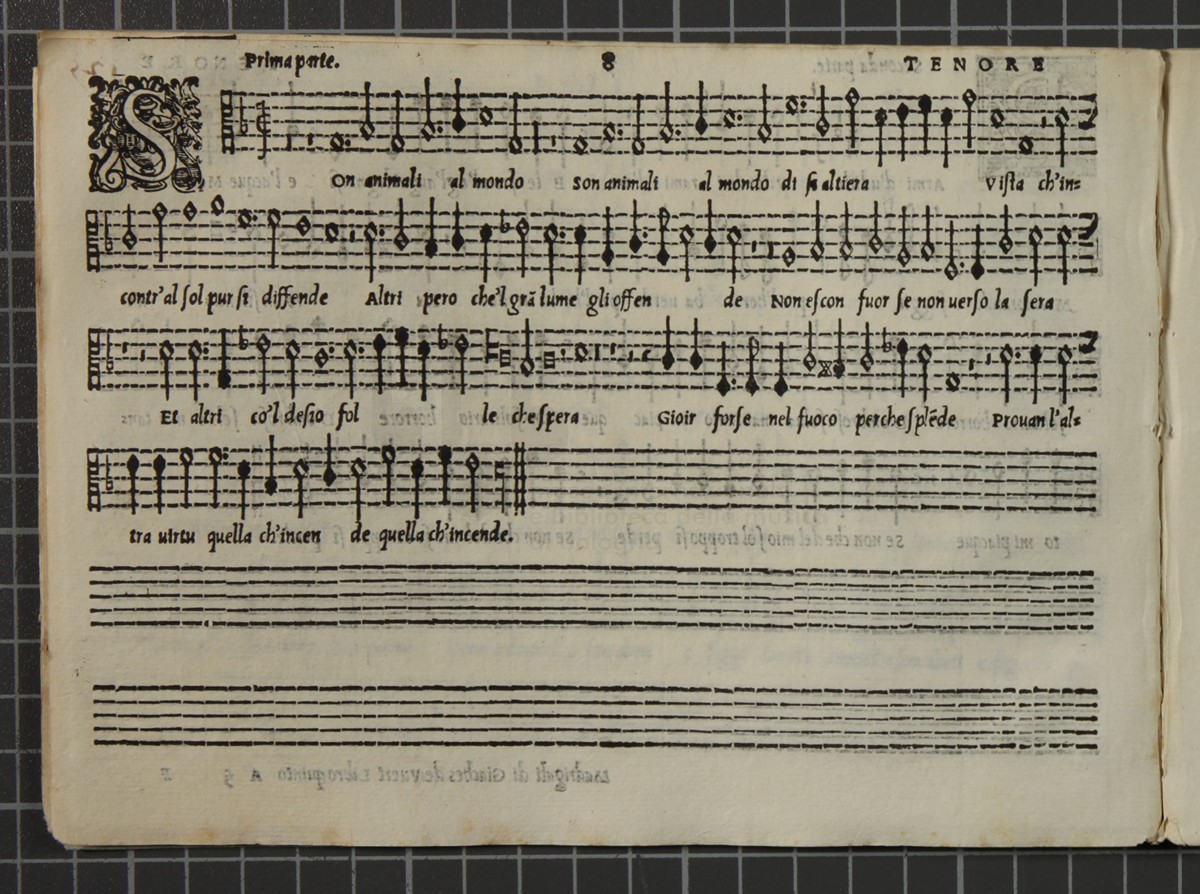 Prima parte. 8 TENORE
SOn animali al mondo Son animali al mondo di sa altiera Vista ch'in=
contr'al sol pur si diffende Altri pero che'l grā lume gli offen de Non escon fuor se non uerso la sera
Et altri co'l desio fol le che spera Gioir forse nel fuoco perche splēde Prouan l'al=
tra uirtu quella ch'incen de quella ch'incende.